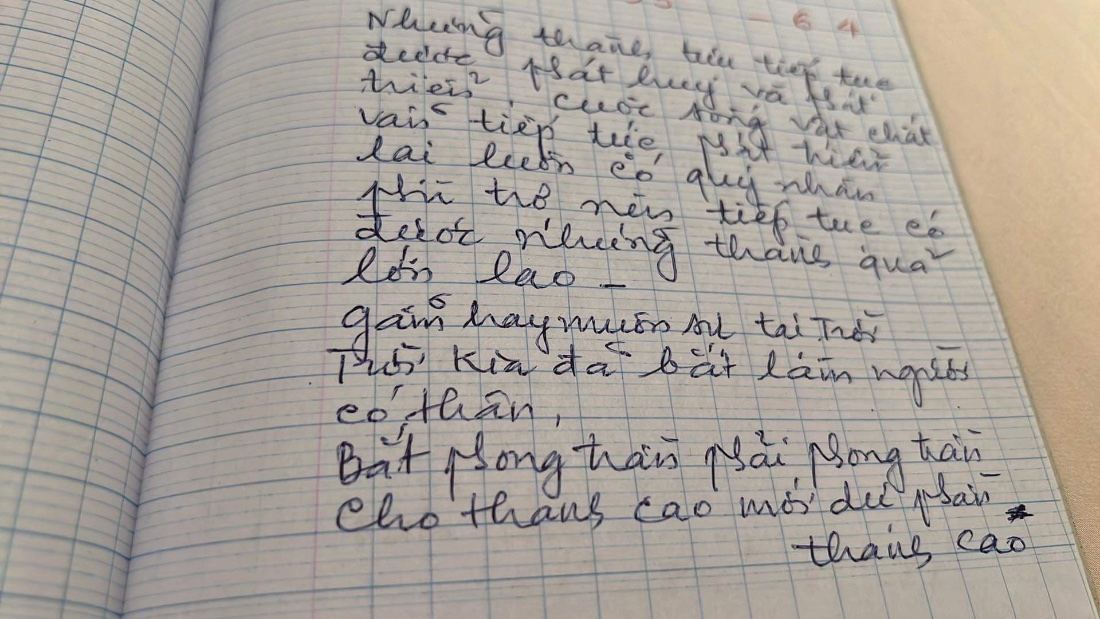 64
Những thành tựu tiếp tục
được phát huy và phát
triển cuộc sống vật chất
vẫn tiếp tục phát triển
lại luôn có quý nhân
phù trợ nên tiếp tục có
được những thành quả
lớn lao -
Gẫm hay muôn sự tại Trời
Trời kia đã bắt làm người
có thân,
Bắt phong trần phải phong trần
Cho thanh cao mới dự phần
thanh cao